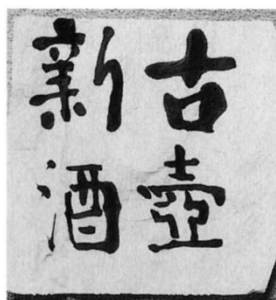 古壺
新酒